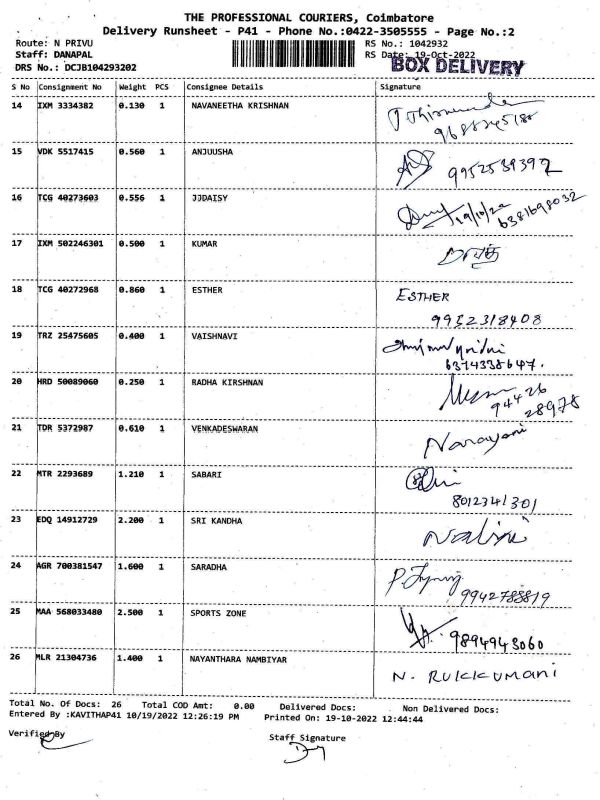 THE PROFESSIONAL COURIERS, Coimbatore
Delivery Runsheet - P41 - Phone No.:0422-3505555 - Page No.:2
Route: N PRIVU RS No.: 1042932
Staff: DANAPAL RS Date: 19-Oct-2022
DRS No.: DCJB104293202 BOX DELIVERY
S No Consignment No Weight PCS Consignee Details Signature
14 IXM 3334382 0.130 1 NAVANEETHA KRISHNAN
15 VDK 5517415 0.560 1 ANJUUSHA 9952539392
16 TCG 40273603 0.556 1 JJDAISY 19/10/22 6381698032
17 IXM 502246301 0.500 1 KUMAR
18 TCG 40272968 0.860 1 ESTHER ESTHER
9952318408
19 TRZ 25475605 0.400 1 VAISHNAVI
6374338647.
20 HRD 50089060 0.250 1 RADHA KIRSHNAN
94426
28978
21 TDR 5372987 0.610 1 VENKADESWARAN Narayani
22 MTR 2293689 1.210 1 SABARI
8012341301
23 EDQ 14912729 2.200 1 SRI KANDHA Nalini
24 AGR 700381547 1.600 1 SARADHA
9942788819
25 MAA 568033480 2.500 1 SPORTS ZONE 9894943060
26 MLR 21304736 1.400 1 NAYANTHARA NAMBIYAR N. RUKKUMANI
Total No. Of Docs: 26 Total COD Amt: 0.00 Delivered Docs: Non Delivered Docs:
Entered By :KAVITHAP41 10/19/2022 12:26:19 PM Printed On: 19-10-2022 12:44:44
Verified By Staff Signature